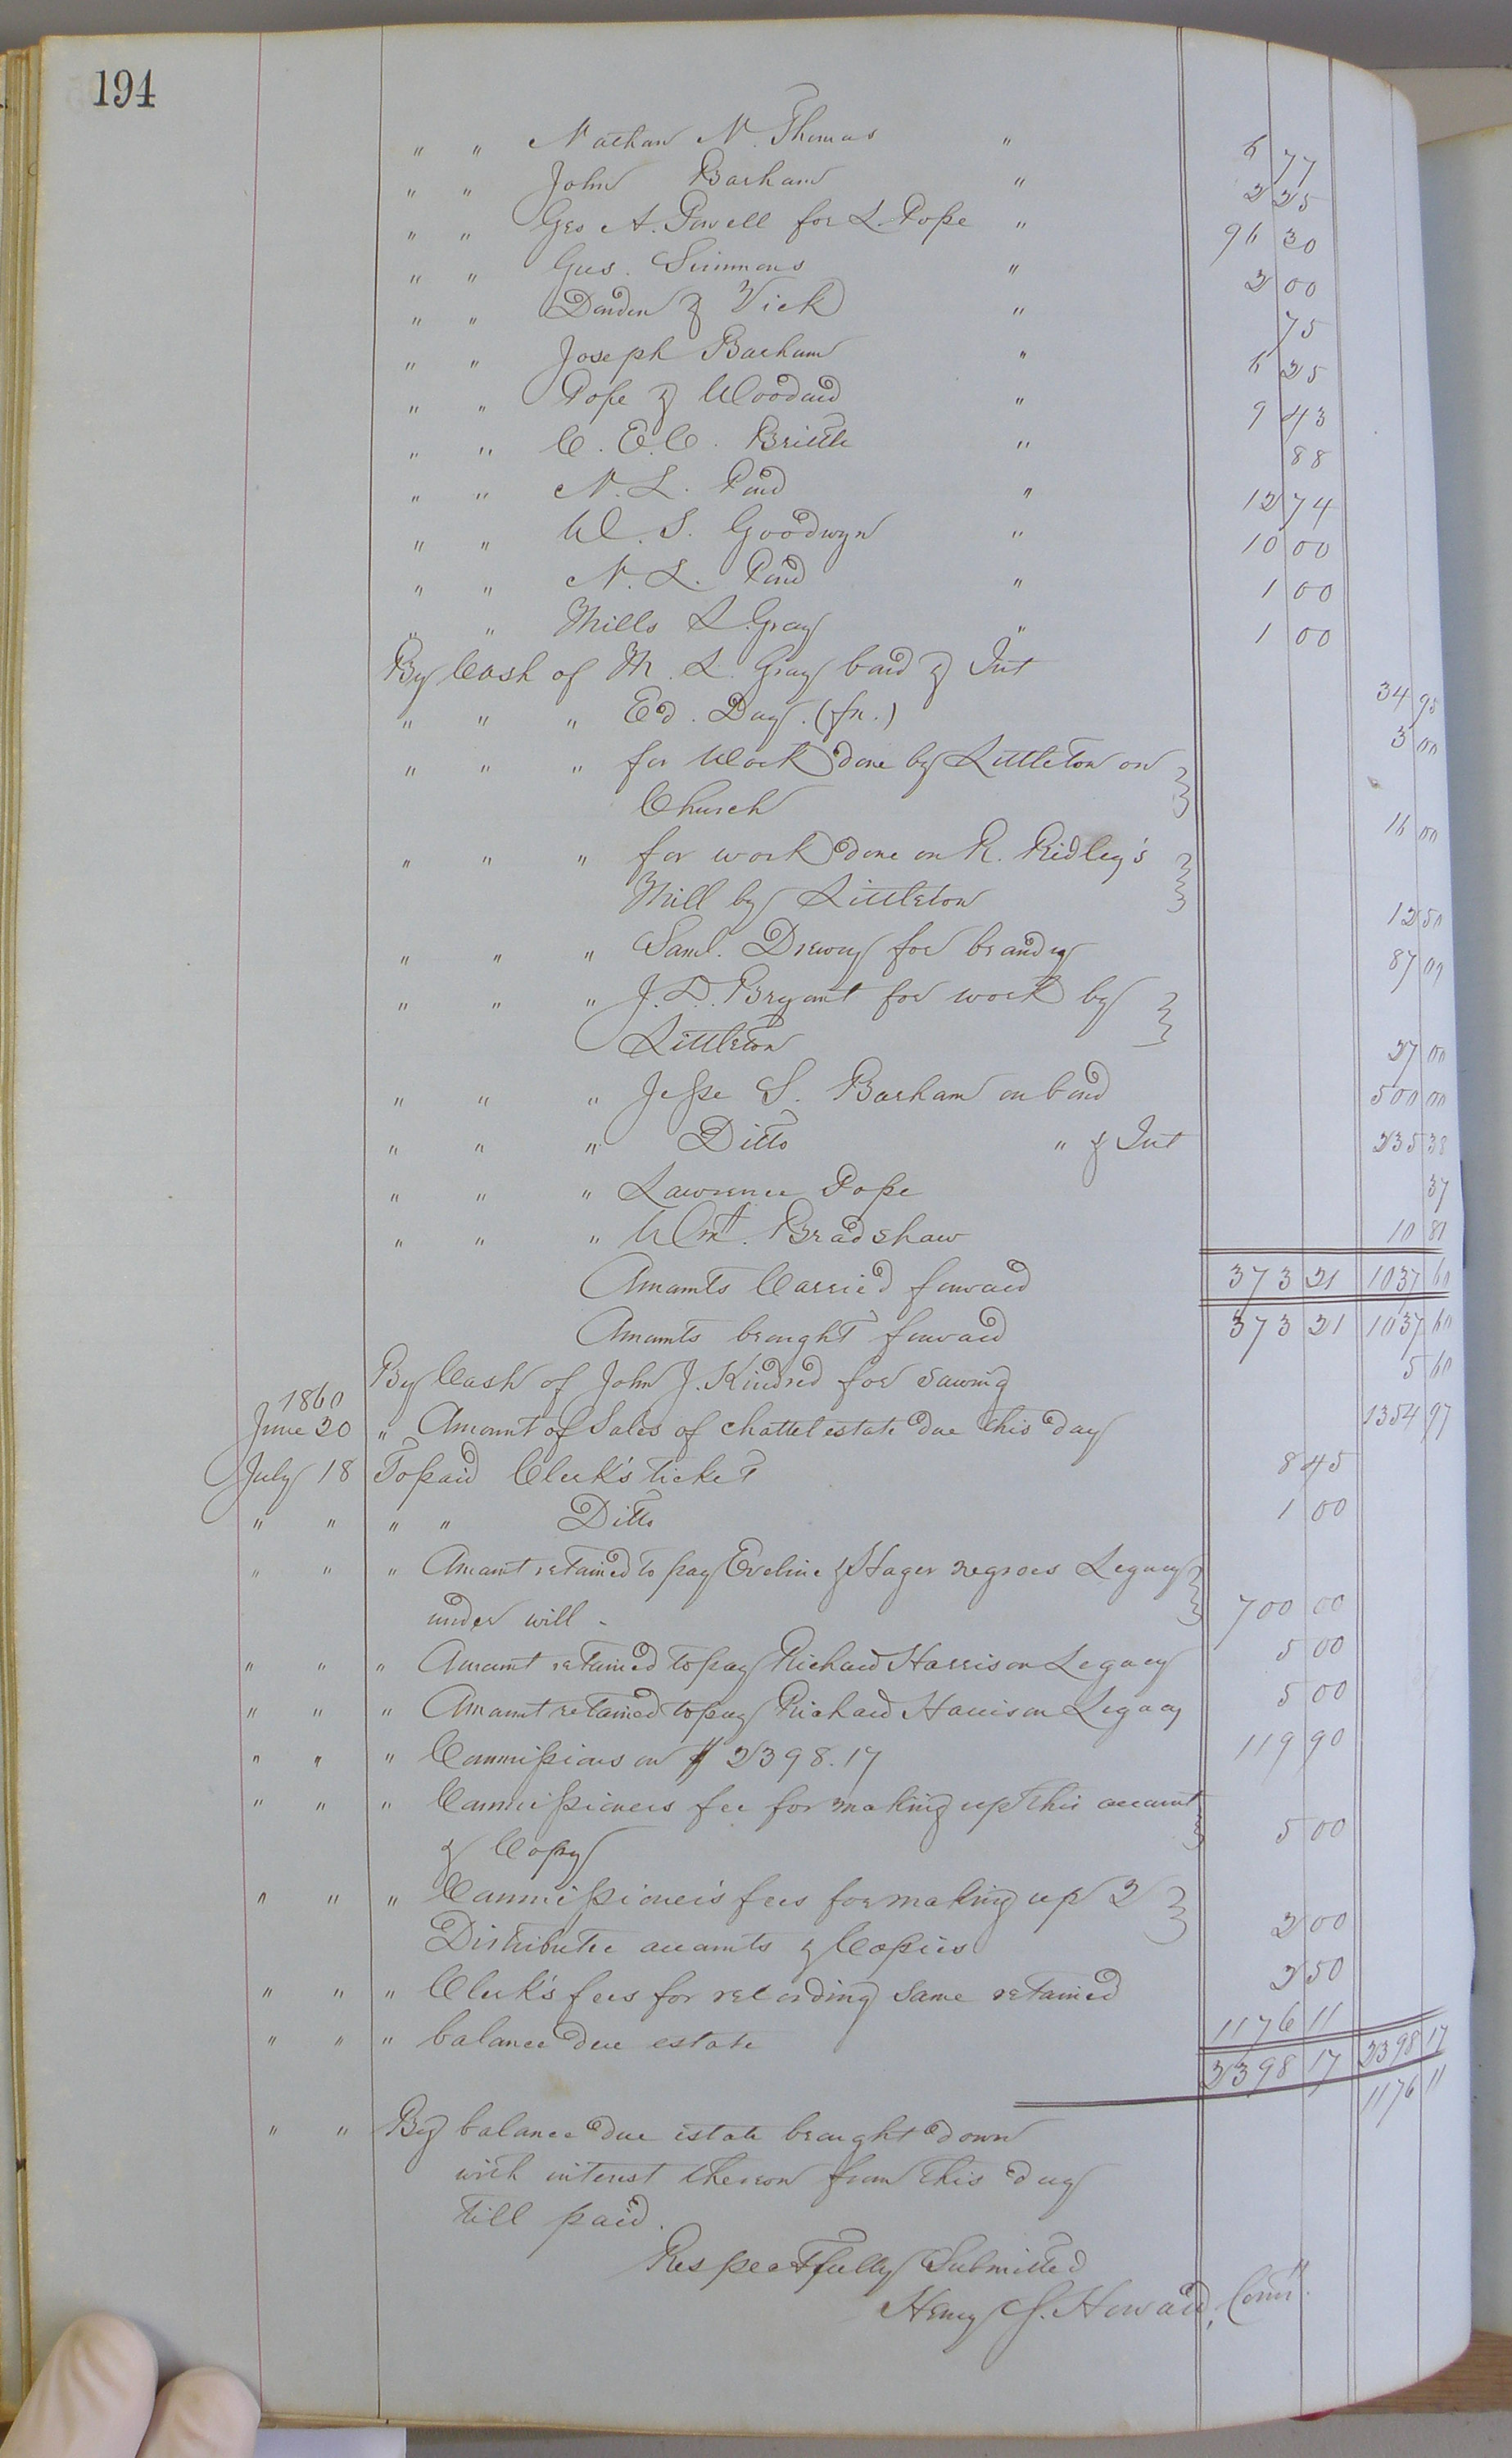 194
" " Nathan N. Thomas " 6 77
" " John Barham " 2 25
" " Geo A. Powell for L. Pope " 96 30
" " Gus. Simmons " 2 00
" " Darden & Vick " 75
" " Joseph Barham " 6 25
" " Pope & Woodard " 9 43
" " C. E. C. Brittle " 88
" " N. L. Pond " 12 74
" " W. S. Goodwyn " 10 00
" " N. L. Pond " 1 00
" " Mills L. Gray " 1 00
By Cash of M. L. Gray bond & Int 34 95
" " " Ed. Day. (fn.) 3 00
" " " for Work done by Littleton on
Church 16 00
" " " for work done on R. Ridley's
Mill by Littleton 12 50
" " " Saml. Drewry for brandy 87 09
" " " J. D. Bryant for work by
Littleton 27 00
" " " Jesse S. Barham on bond 500 00
" " " Ditto " & Int 235 38
" " " Lawrence Pope 37
" " " Wm. Bradshaw 10 81
Amounts Carried forward 373 21 1037 60
Amounts brought forward 373 21 1037 60
By Cash of John J. Kindred for sawing 5 60
1860
June 20 " Amount of Sales of chattel estate due this day 1354 97
July 18 To paid Clerk's ticket 8 45
" " " " Ditto 1 00
" " " Amount retained to pay Eveline & Hager negroes Legacy
under will - 700 00
" " " Amount retained to pay Richard Harrison Legacy 5 00
" " " Amount retained to pay Richard Harrison Legacy 5 00
" " " Commissions on $2398.17 119 90
" " " Commissioners fee for making up this account
& Copy 5 00
" " " Commissioner's fees for making up 2
Distributee accounts & Copies 2 00
" " " Clerk's fees for recording same retained 2 50
" " " balance due estate 1176 11
2398 17 2398 17
1176 11
" " By balance due estate brought down
with interest thereon from this day
till paid.
Respectfully Submitted
Henry J. Howard, Comr.